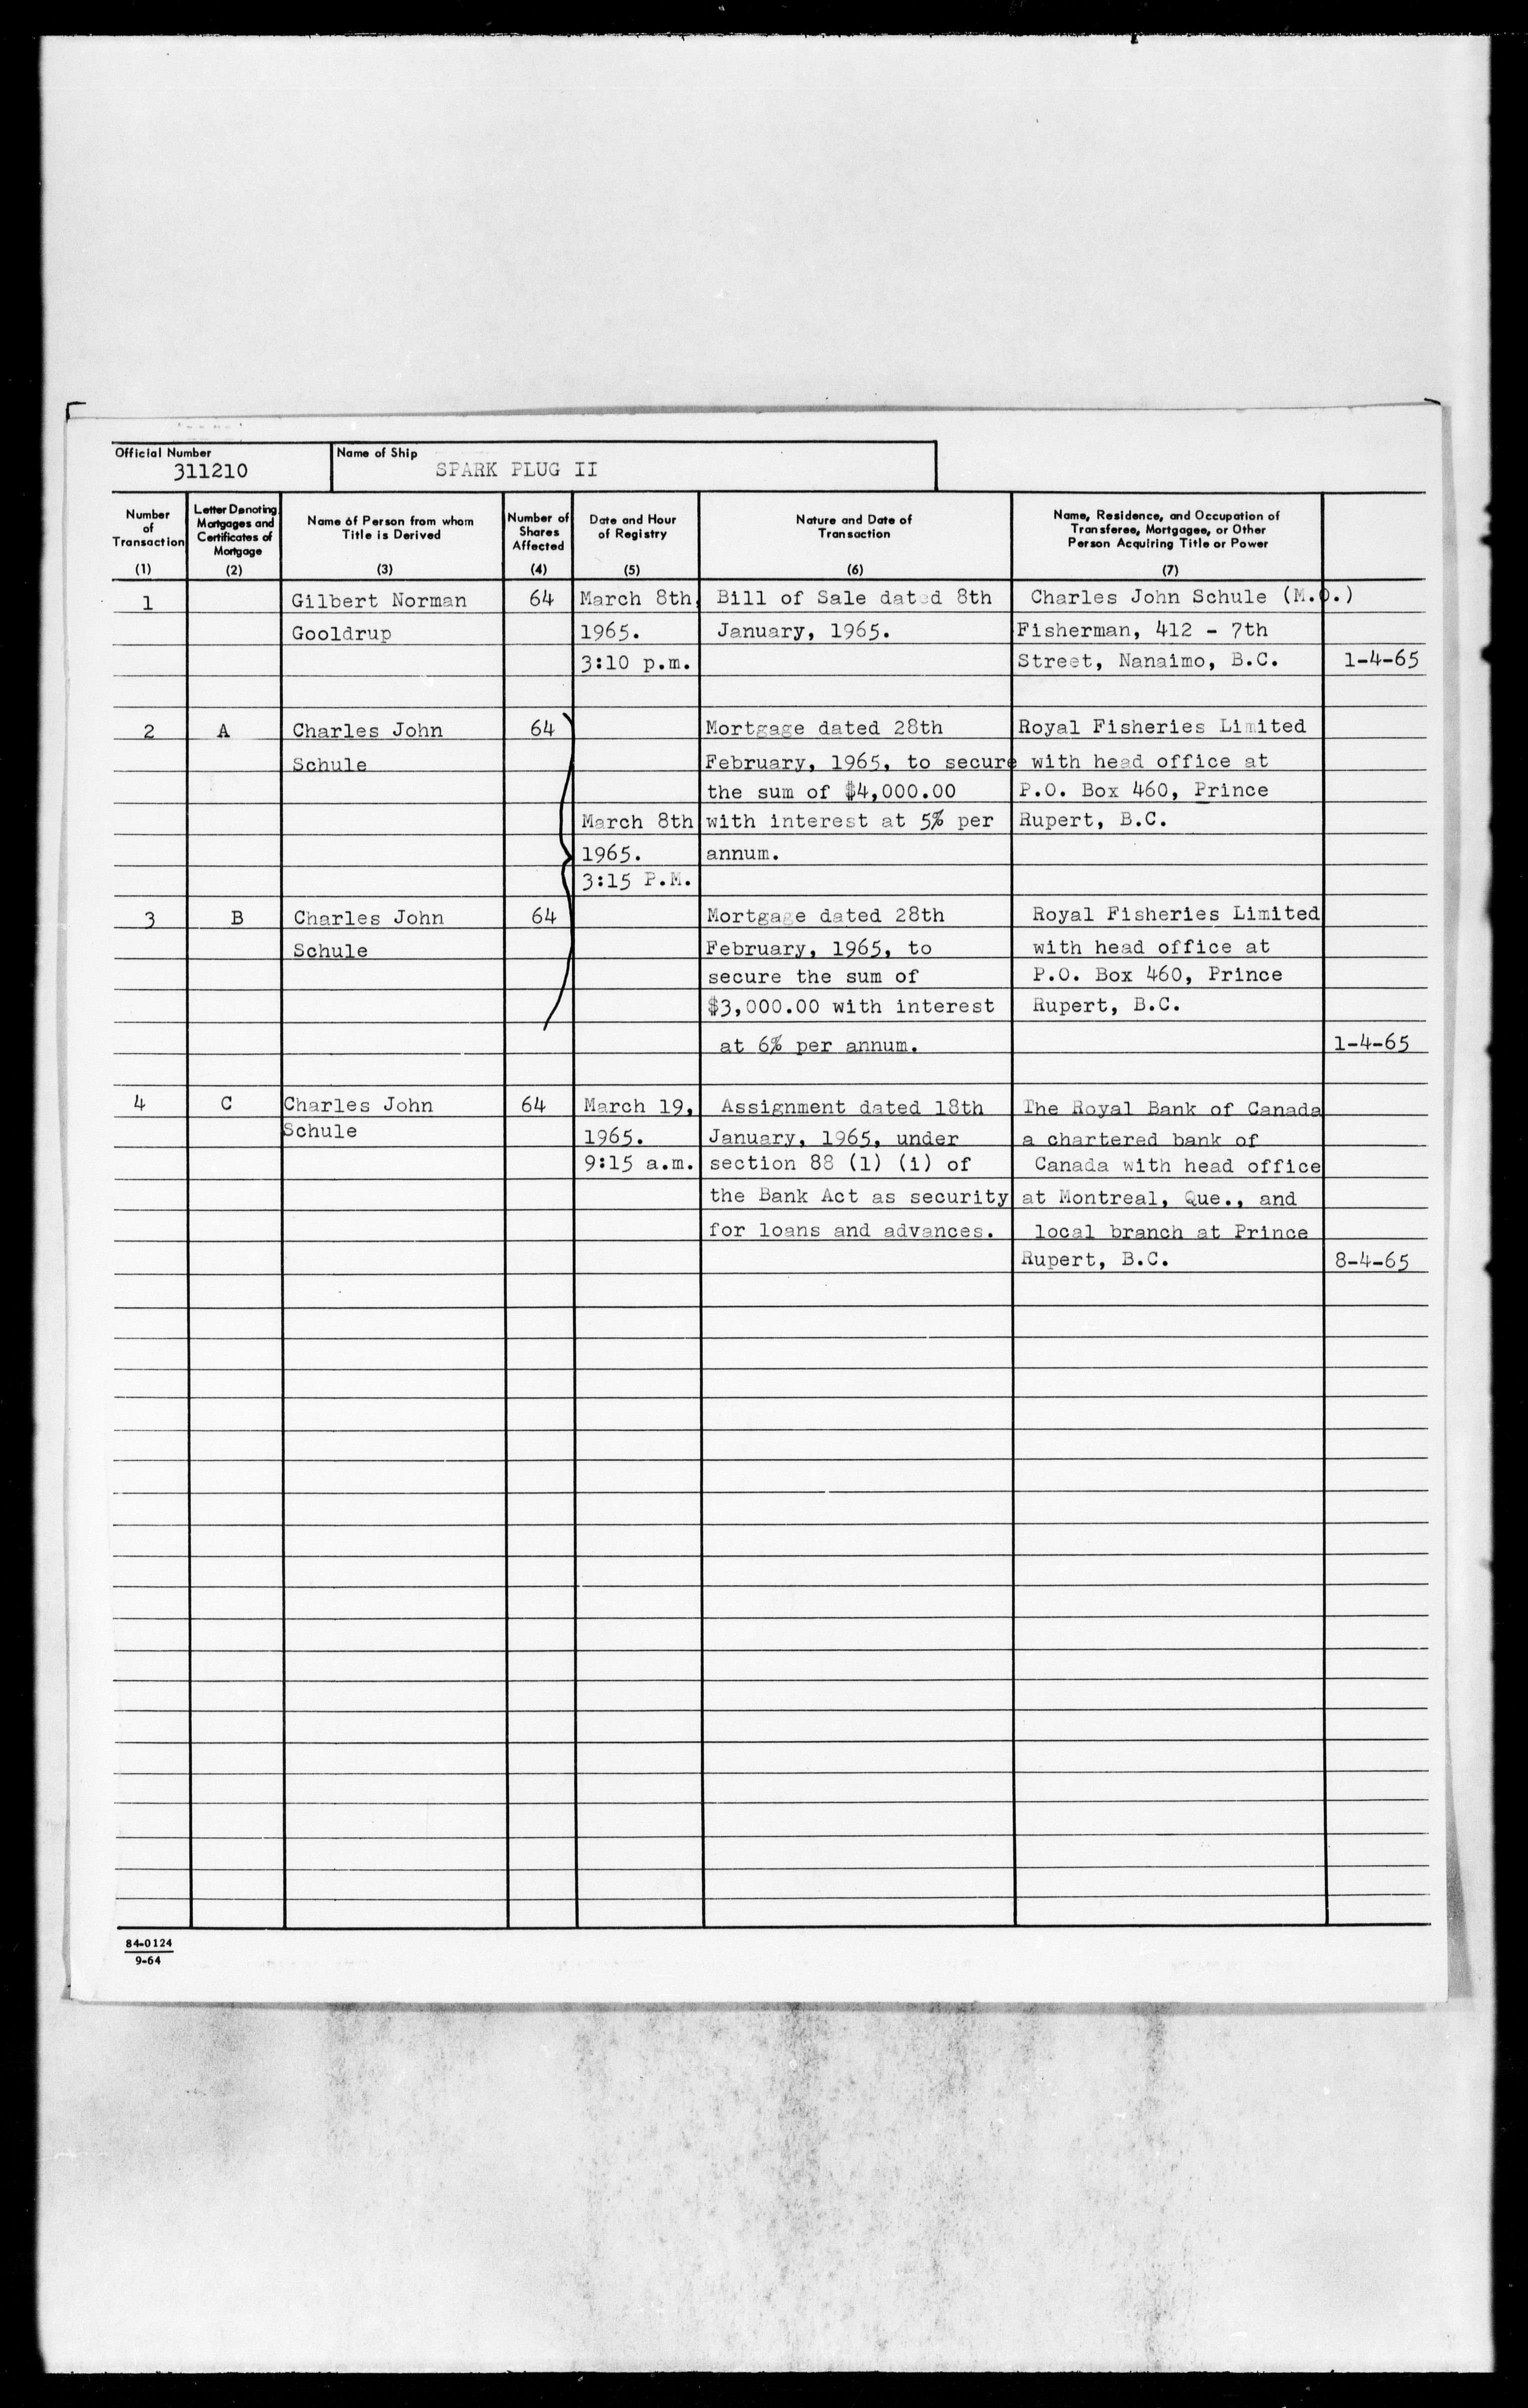 Official Number
311210
Name of Ship
SPARK PLUG II
Number of Transaction (1)
Letter Denoting Mortgages and Certificates of Mortgage (2)
Name of Person from whom Title is Derived (3)
Number of Shares Affected (4)
Date and Hour of Registry (5)
Nature and Date of Transaction (6)
Name, Residence, and Occupation of Transferee, Mortgagee, or Other Person Acquiring Title or Power (7)
1 Gilbert Norman 64 March 8th, Bill of Sale dated 8th Charles John Schule (M.O.)
Gooldrup 1965. January, 1965. Fisherman, 412 - 7th
3:10 p.m. Street, Nanaimo, B.C. 1-4-65
2 A Charles John 64 Mortgage dated 28th Royal Fisheries Limited
Schule February, 1965, to secure with head office at
the sum of $4,000.00 P.O. Box 460, Prince
March 8th with interest at 5% per Rupert, B.C.
1965. annum.
3:15 P.M.
3 B Charles John 64 Mortgage dated 28th Royal Fisheries Limited
Schule February, 1965, to with head office at
secure the sum of P.O. Box 460, Prince
$3,000.00 with interest Rupert, B.C.
at 6% per annum. 1-4-65
4 C Charles John 64 March 19, Assignment dated 18th The Royal Bank of Canada
Schule 1965. January, 1965, under a chartered bank of
9:15 a.m. section 88 (1) (i) of Canada with head office
the Bank Act as security at Montreal, Que., and
for loans and advances. local branch at Prince
Rupert, B.C. 8-4-65
84-0124
9-64